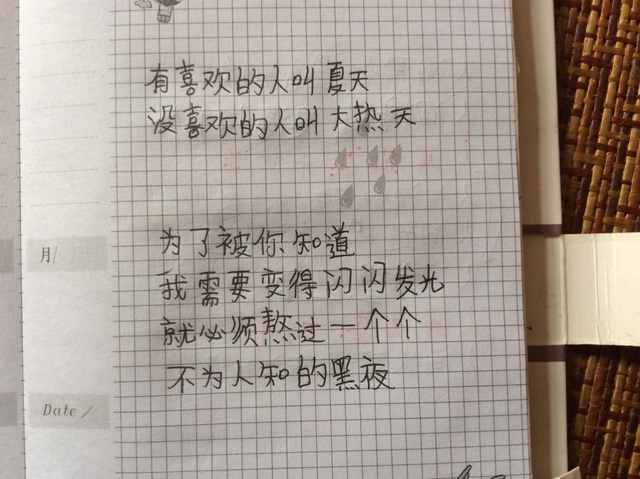 有喜欢的人叫夏天
没喜欢的人叫大热天
为了被你知道
月/
我需要变得闪闪发光
就必须熬过一个个
不为人知的黑夜
Date/